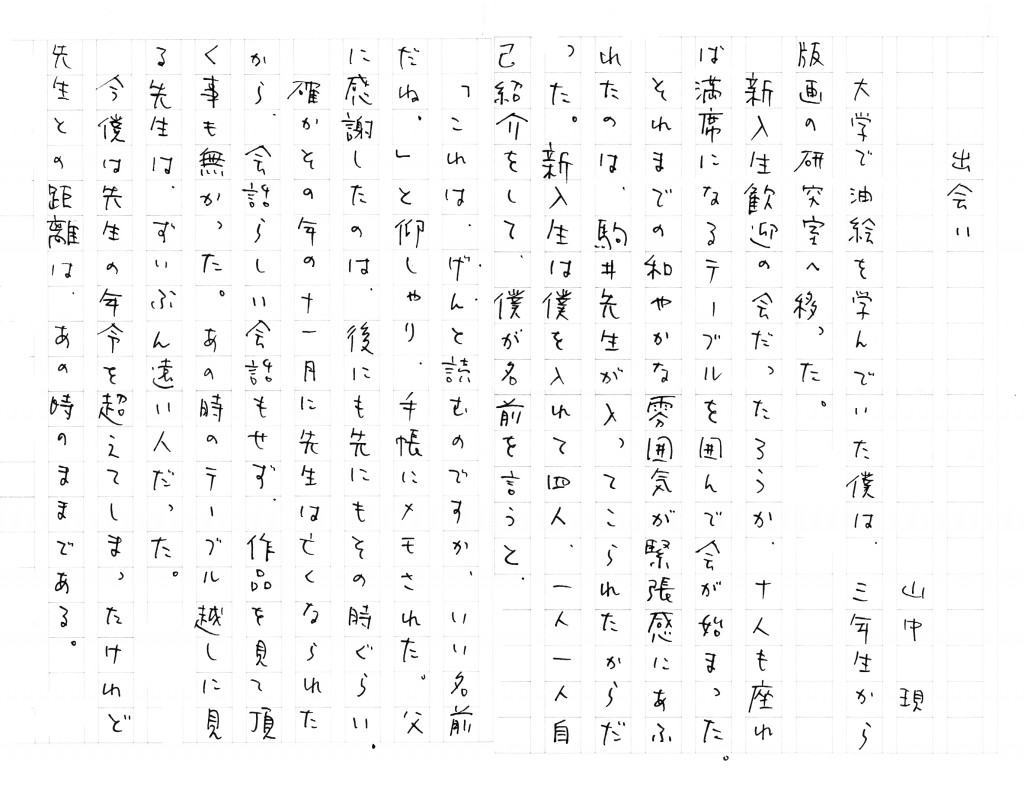 出会い
山中 現
大学で油絵を学んでいた僕は、三年生から
版画の研究室へ移った。
新入生歓迎の会だったろうか、十人も座れ
ば満席になるテーブルを囲んで会が始まった。
それまでの和やかな雰囲気が緊張感にあふ
れたのは、駒井先生が入ってこられたからだ
った。新入生は僕を入れて四人、一人一人自
己紹介をして、僕が名前を言うと、
「これは、げんと読むのですか、いい名前
だね。」と仰しゃり、手帳にメモされた。父
に感謝したのは、後にも先にもその時ぐらい。
確かその年の十一月に先生は亡くなられた
から、会話らしい会話もせず、作品を見て頂
く事も無かった。あの時のテーブル越しに見
る先生は、ずいぶん遠い人だった。
今僕は先生の年令を超えてしまったけれど
先生との距離は、あの時のままである。